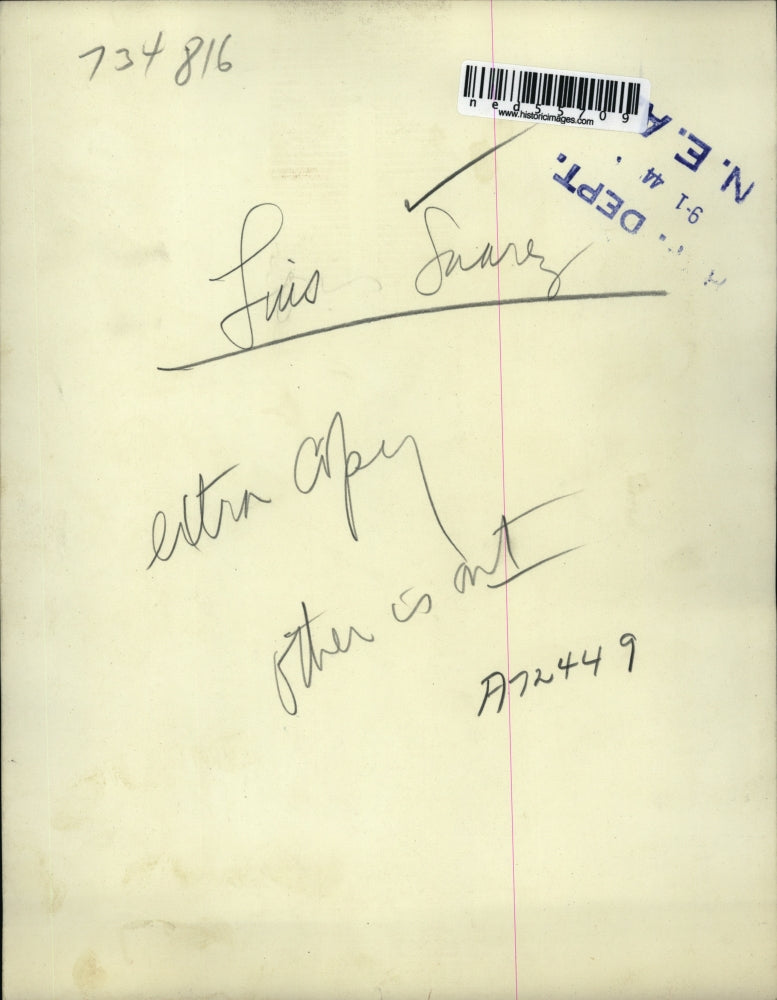 734 816
ned55709
www.historicimages.com
N.E.A.
9-1 44
DEPT.
Luis Suarez
extra copy
other is out
A72449